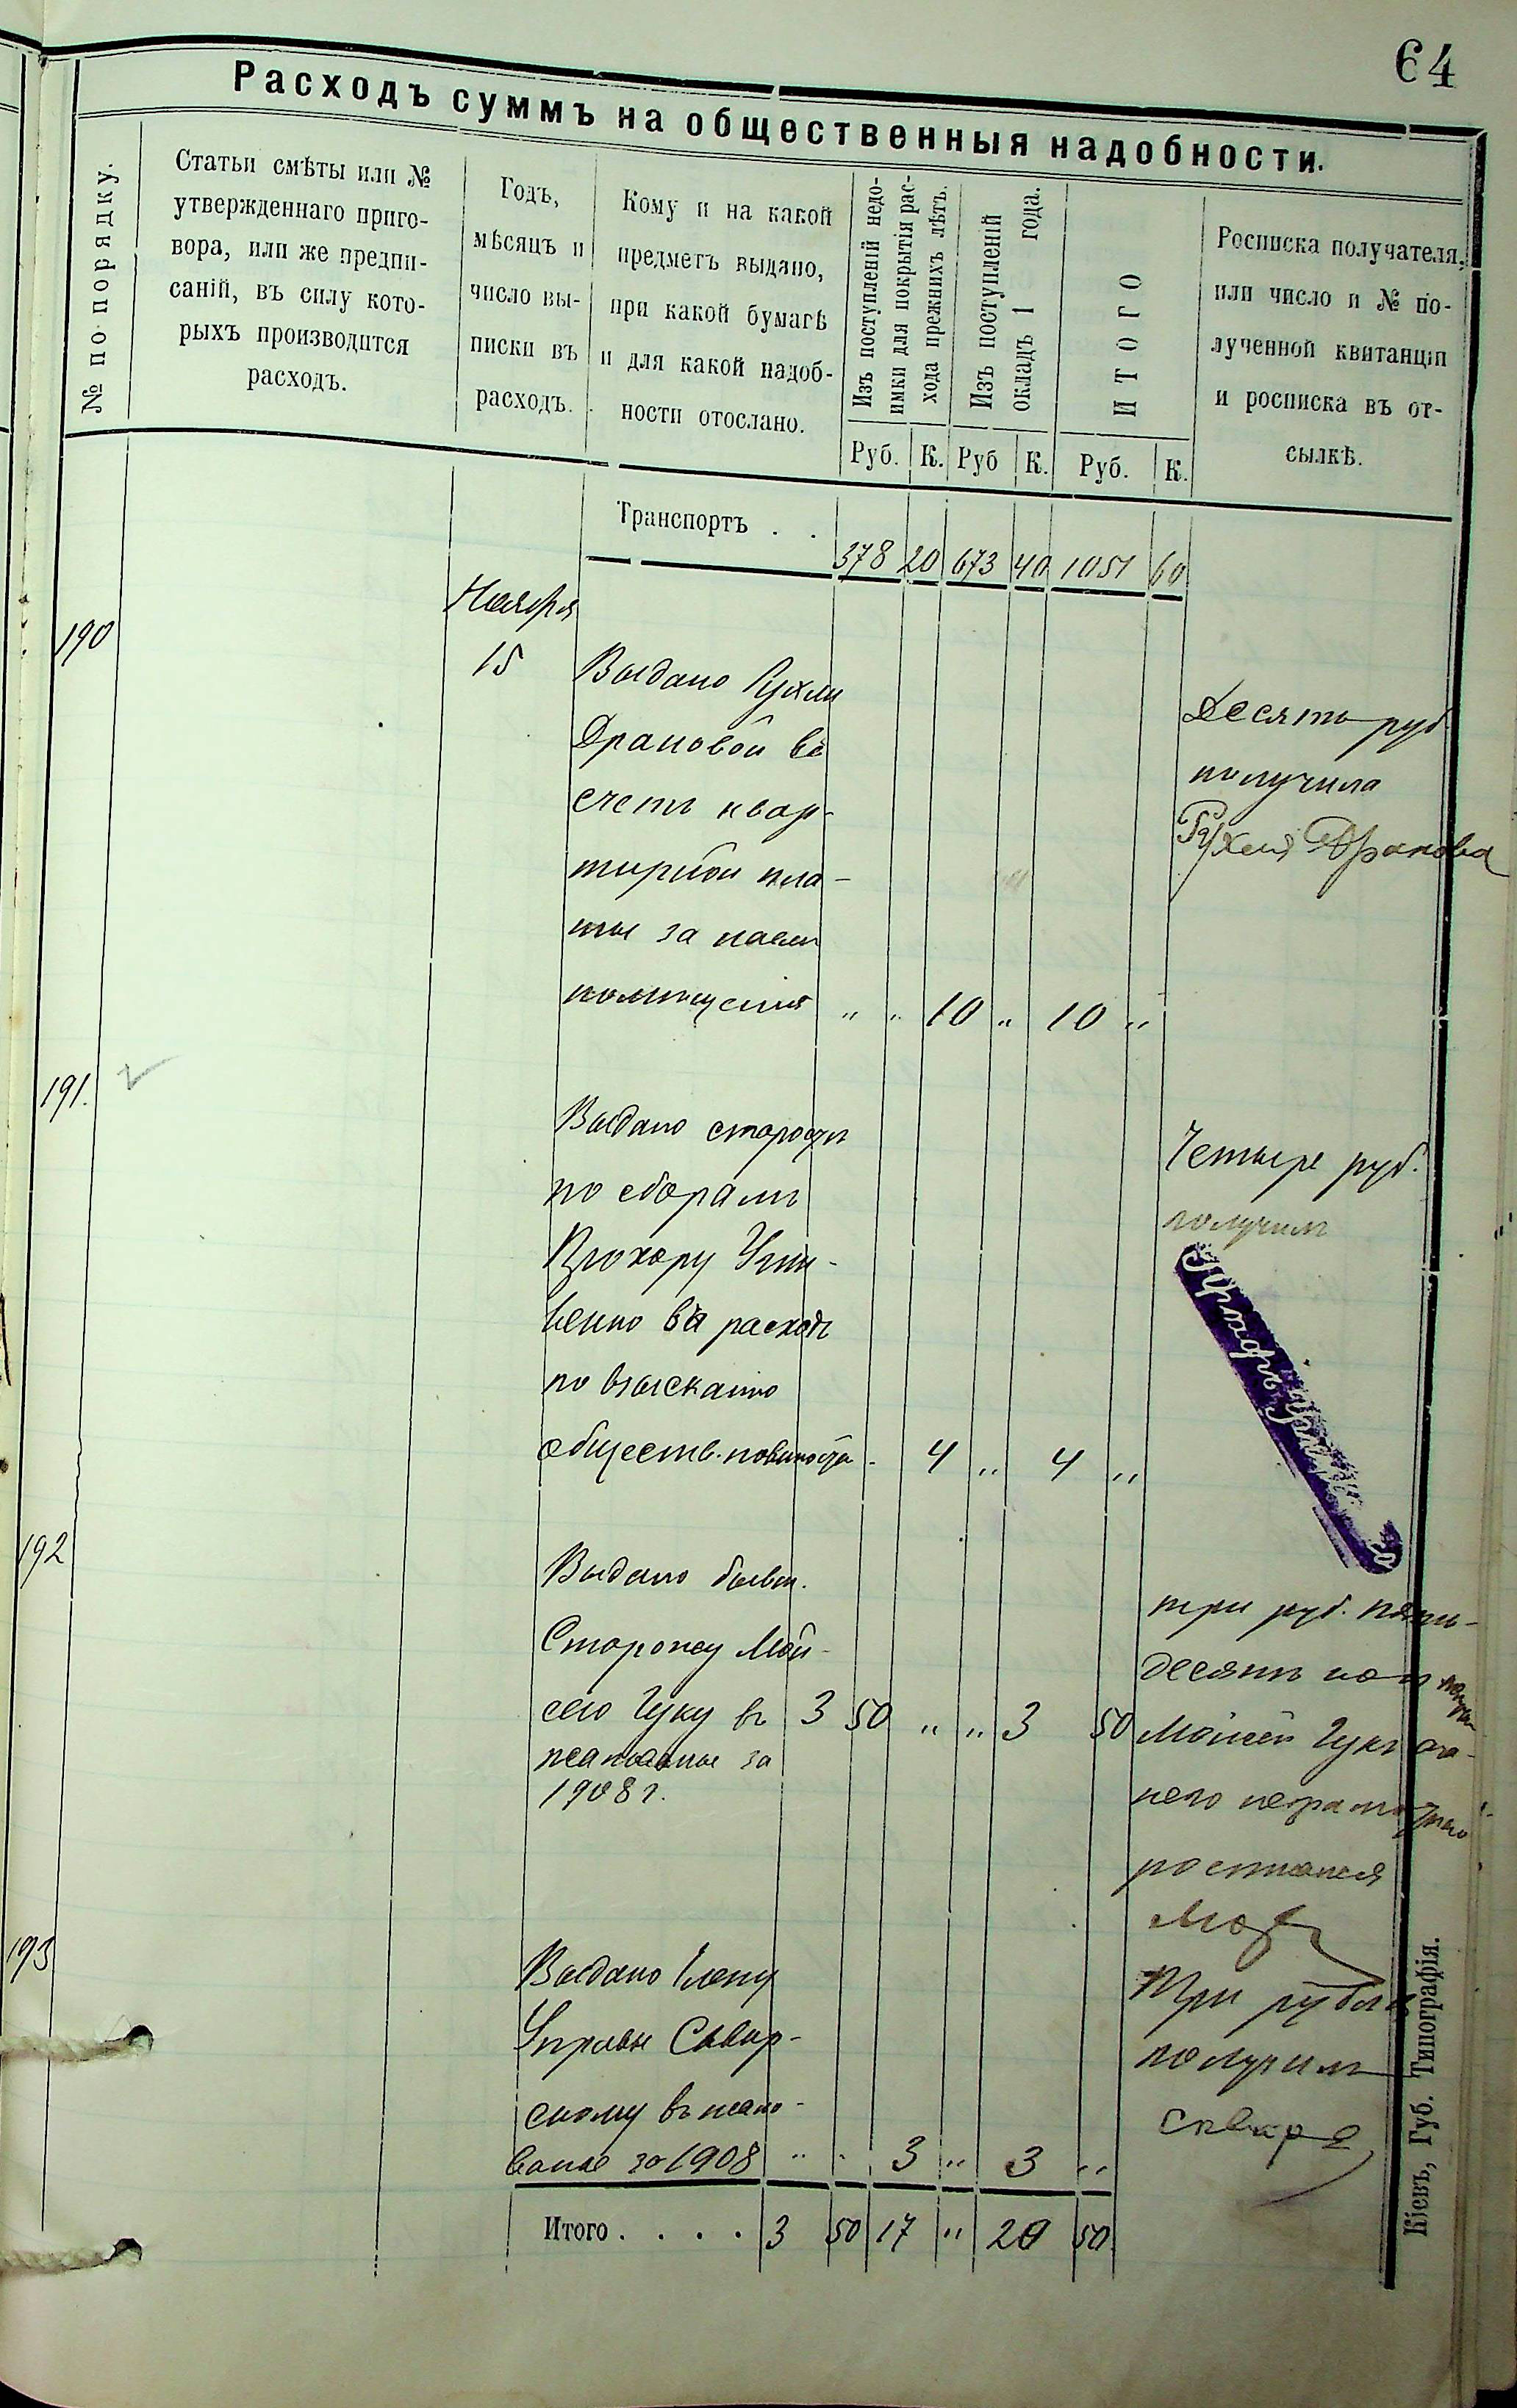 64
Расходъ суммъ на общественныя надобности.
№ по порядку.
Статьи смѣты или №
утвержденнаго приго-
вора, или же предпи-
саній, въ силу кото-
рыхъ производится
расходъ.
Годъ,
мѣсяцъ и
число вы-
писки въ
расходъ.
Кому и на какой
предметъ выдано,
при какой бумагѣ
и для какой надоб-
ности отослано.
Изъ поступленій недо-
имки для покрытія рас-
хода прежнихъ лѣтъ.
Изъ поступленій
окладъ 1 года.
ИТОГО
Росписка получателя,
или число и № по-
лученной квитанціи
и росписка въ от-
сылкѣ.
Руб. К. Руб К. Руб. К.
Транспортъ . . 378 20 673 40 1051 60
Ноября
190 15 Выдано Рухли
Драновой въ
счетъ квар-
тирной пла-
ты за наемъ
помѣщенія " " 10 " 10 "
Десять руб
получила
Рухля Дранова
191. Выдано старостѣ
по сборамъ
Прохору
въ расходъ
по взысканію
обществ. - 4 " 4 "
Четыре руб.
получилъ
192 Выдано бывш.
Сторожу Мой-
сею Гуку въ 3 50 " " 3 50
жалованье за
1908 г.
три руб. пять-
десятъ коп
Моисей Гукъ а за
него неграмотнаго
росписался
193 Выдано Члену
Управы Сквир-
скому въ жало-
ванье за 1908 " " 3 " 3 "
Три рубля
получилъ
Итого . . . . 3 50 17 " 20 50
Кіевъ, Губ. Типографія.